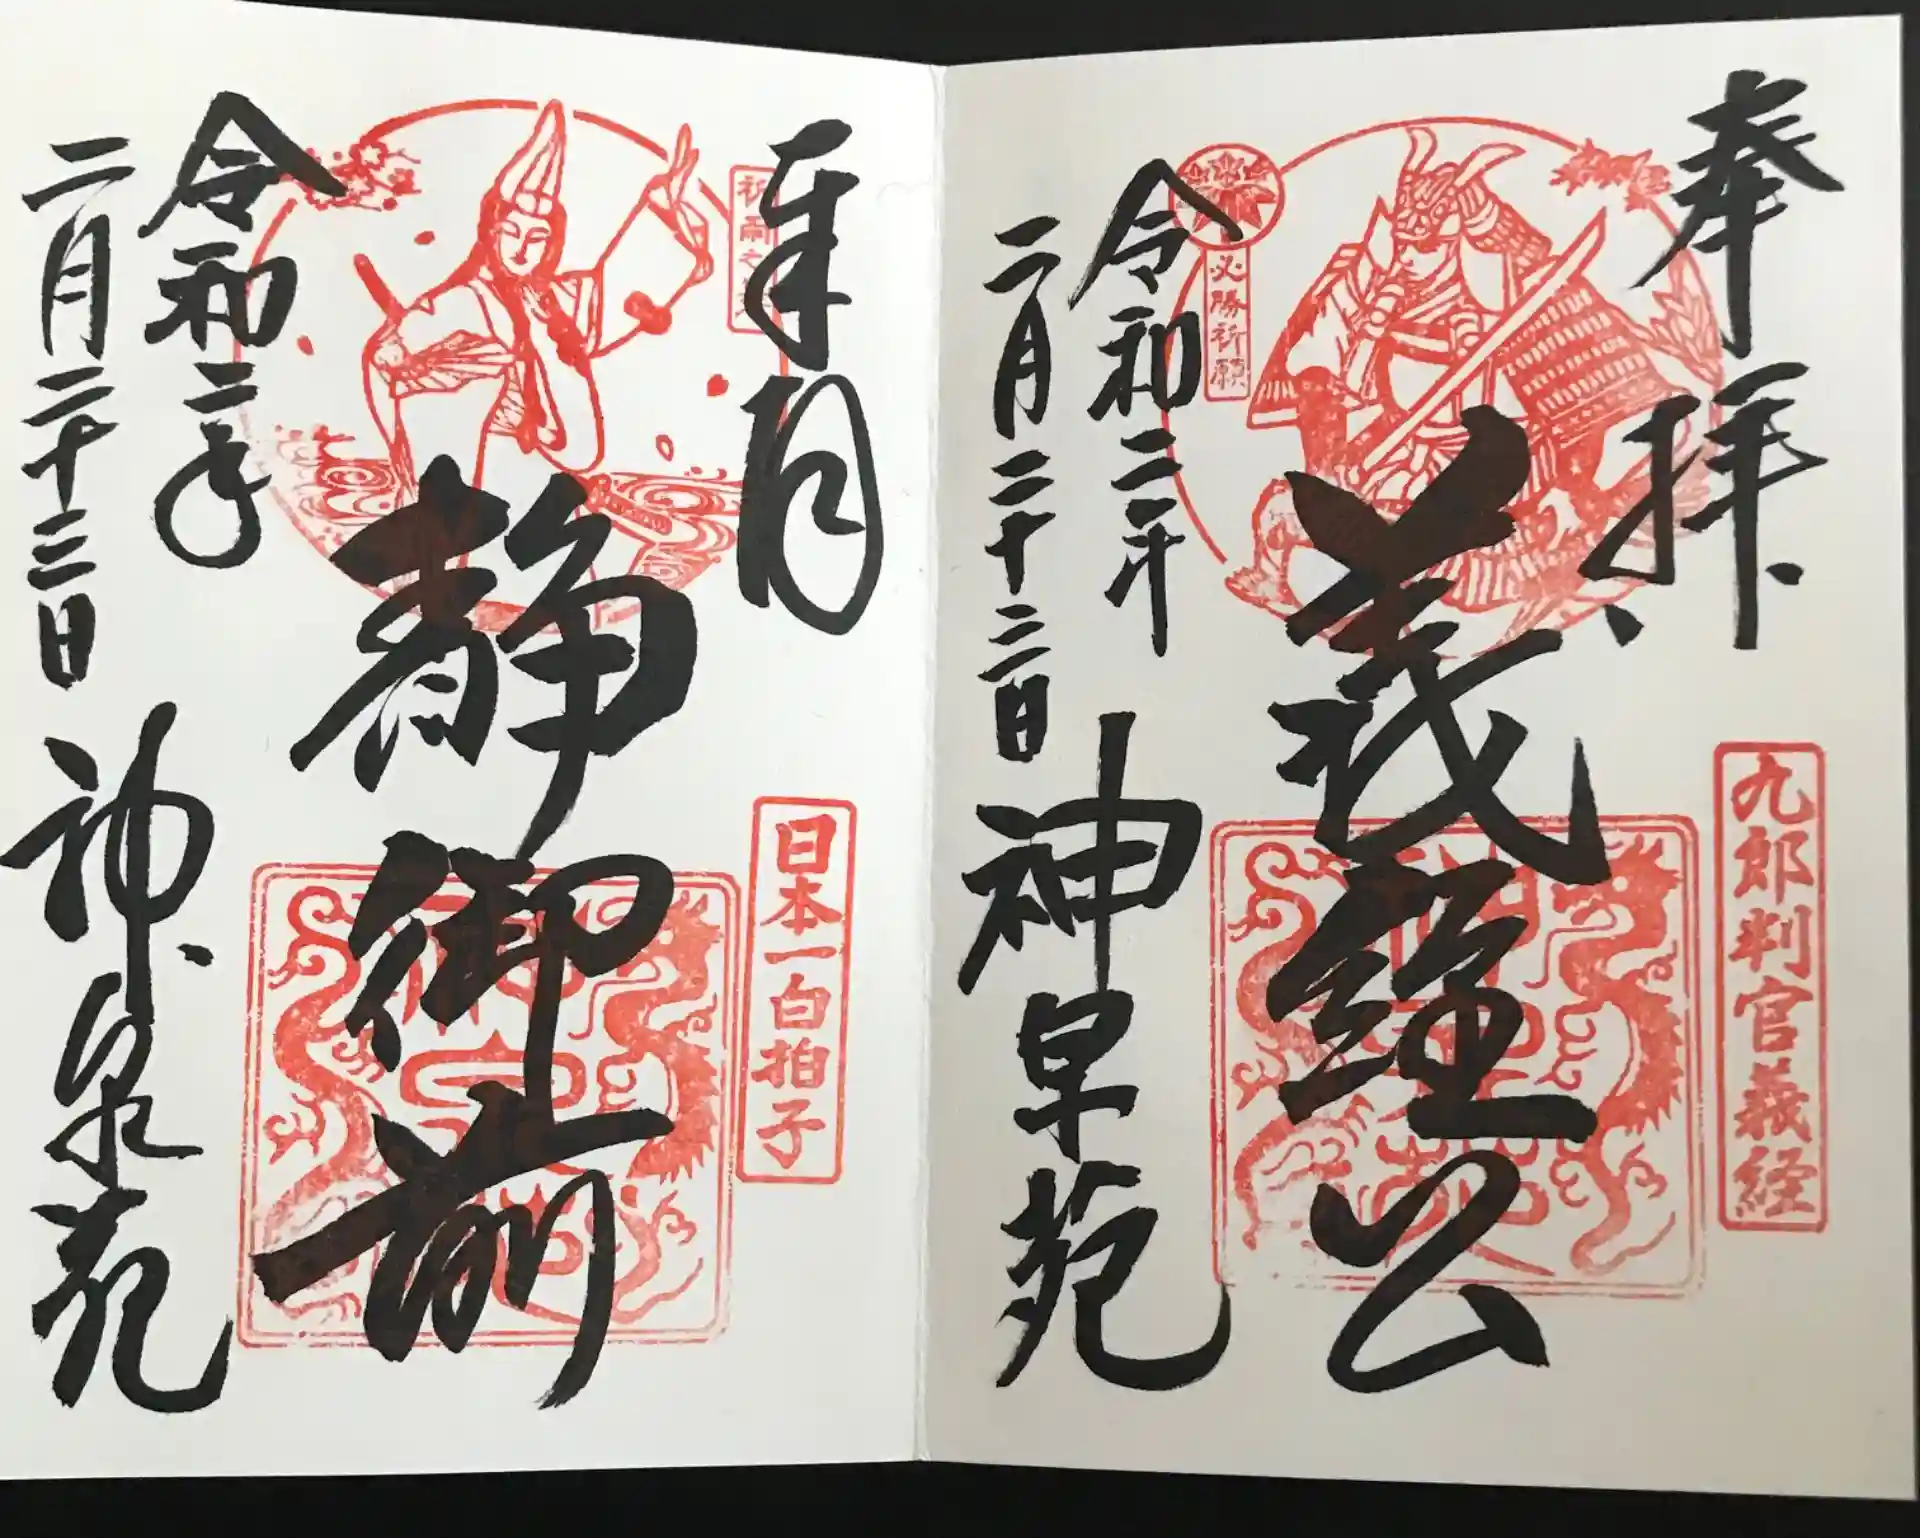 奉拝
九郎判官義経
義経公
必勝祈願
令和二年
二月二十三日
神泉苑
日本一白拍子
静御前
令和二年
二月二十三日
神泉苑